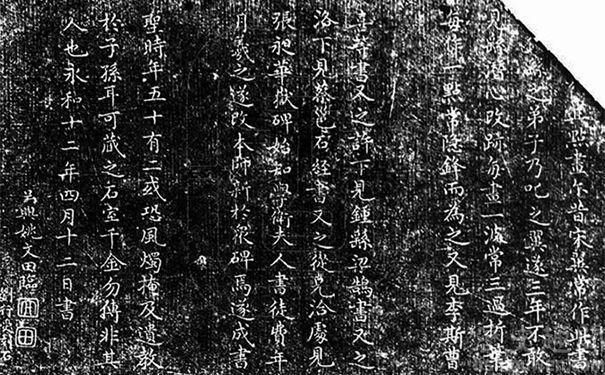 點畫尔昔宋翼常作此書
繇之弟子乃叱之翼遂三年不敢
見繇潛心改跡每畫一波常三過折筆
每作一點常隱鋒而為之又見李斯曹
喜等書又之許下見鍾繇梁鵠書又之
洛下見蔡邕石經書又之從兄洽處見
張昶華嶽碑始知學衛夫人書徒費年
月羲之遂改本師所於衆碑焉遂成書
聖時年五十有二或恐風燭掩及遺教
於子孫耳可藏之石室千金勿傳非其
人也永和十二年四月十二日書
吳興姚文田臨